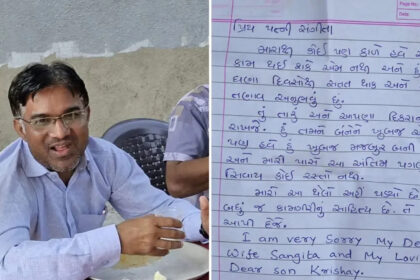 Page No:
Date
પ્રિય પત્ની સંગીતા
મારાથી કોઈ પણ કાળે હવે
કામ થઈ શકે એમ નથી અને હું
ઘણા દિવસોથી સતત થાક અને
તણાવ અનુભવું છું.
તું તારું અને આપણા દિકરા
રાખજે. હું તમને બંનેને ખુબજ
પણ હવે હું ખુબજ મજબુર બની
અને મારી પાસે આ અંતિમ પગલા
સિવાય કોઈ રસ્તો નથી.
મારો આ થેલો અહીં પડ્યો છે
બધું જ કામગીરીનું સાહિત્ય છે. તે
આપી દેજે.
I am very Sorry My De
Wife Sangita and My Lov
Dear son Krishay.